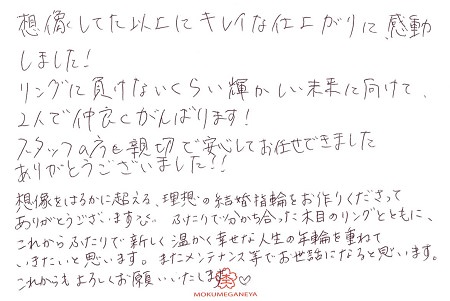 想像してた以上にキレイな仕上がりに、感動
しました!
リングに負けないくらい輝かしい未来に向けて、
2人で仲良くがんばります!
スタッフの方も親切で安心してお任せできました
ありがとうございました!!
想像をはるかに超える、理想の結婚指輪をお作りくださって
ありがとうございます ふたりで分かち合った木目のリングとともに、
これからふたりで新しく温かく幸せな人生の年輪を重ねて
いきたいと思います。またメンテナンス等でお世話になると思います。
これからもよろしくお願いいたします
MOKUMEGANEYA